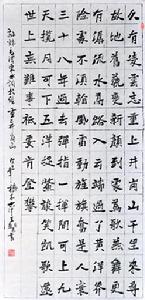 久有凌雲志重上井岡山千里來尋
故地舊貌變新顏到處鶯歌燕舞更
有潺潺流水高路入雲端過了黃洋界
險處不須看風雷動旌旗奮是人寰
三十八年過去彈指一揮間可上九
天攬月可下五洋捉鱉談笑凱歌還
世上無難事只要肯登攀
毛澤東詞水調歌頭重上井岡山